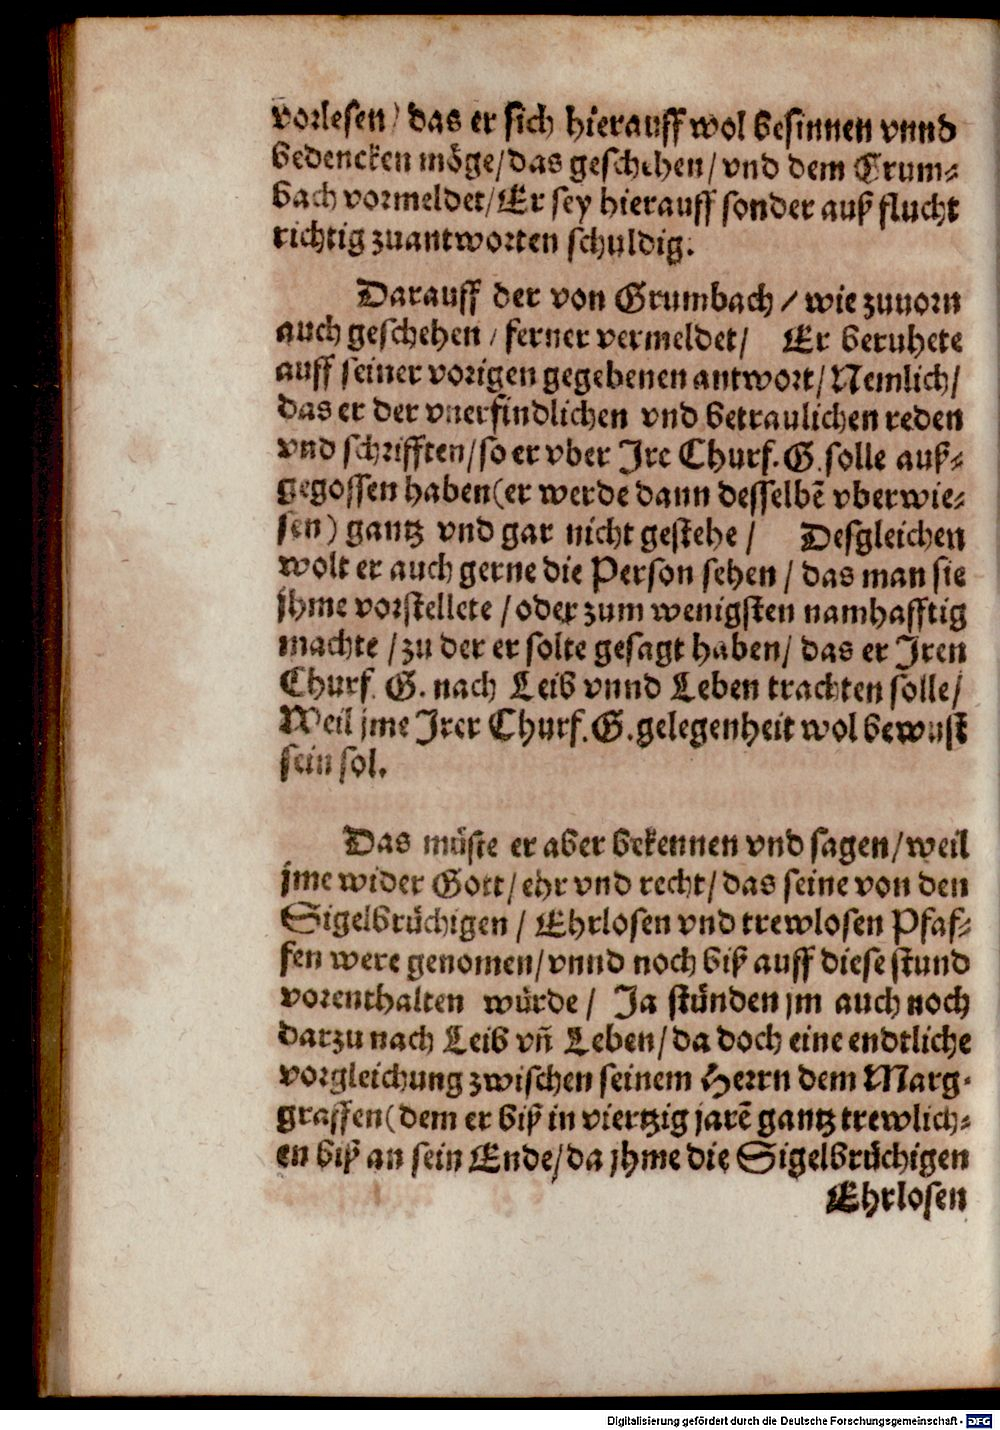 vorlesen / das er sich hierauff wol besinnen vnnd
bedencken möge/das geschehen/ vnd dem Crum⸗
bach vormeldet/Er sey hierauff sonder auß flucht
richtig zuantworten schuldig.
Darauff der von Grumbach / wie zuuorn
auch geschehen / ferner vermeldet/ Er beruhete
auff seiner vorigen gegebenen antwort/Nemlich/
das er der vnerfindlichen vnd betraulichen reden
vnd schrifften/so er vber Ire Churf. G. solle auß⸗
gegossen haben(er werde dann desselbẽ vberwie⸗
sen) gantz vnd gar nicht gestehe / Desgleichen
wolt er auch gerne die Person sehen / das man sie
jhme vorstellete / oder zum wenigsten namhafftig
machte / zu der er solte gesagt haben/ das er Iren
Churf. G. nach Leib vnnd Leben trachten solle/
Weil jme Irer Churf. G. gelegenheit wol bewust
sein sol.
Das müste er aber bekennen vnd sagen/weil
jme wider Gott/ ehr vnd recht/ das seine von den
Sigelbrüchigen / Ehrlosen vnd trewlosen Pfaf⸗
fen were genomen/vnnd noch biß auff diese stund
vorenthalten würde / Ja stünden jm auch noch
darzu nach Leib vñ Leben/da doch eine endtliche
vorgleichung zwischen seinem Herrn dem Marg⸗
graffen(dem er biß in viertzig jarẽ gantz trewlich⸗
en biß an sein Ende/da jhme die Sigelbrüchigen
Ehrlosen
Digitalisierung gefördert durch die Deutsche Forschungsgemeinschaft - DFG